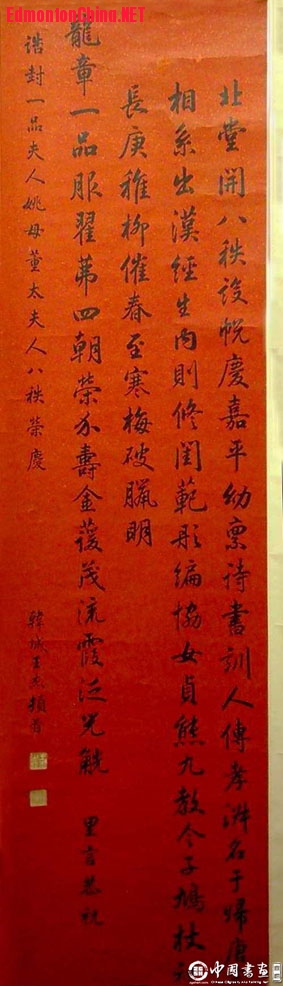 EdmontonChina.NET
北堂開八秩設帨慶嘉平幼稟詩書訓人傳孝淑名于歸唐
相系出漢經生內則修閨範彤編協女貞熊丸教令子鳩杖
長庚稚柳催春至寒梅破臘明
龍章一品服翟茀四朝榮介壽金萲茂流霞泛兕觥
里言恭祝
誥封一品夫人姚母董太夫人八秩榮慶
韓城王杰頓首
中国書画